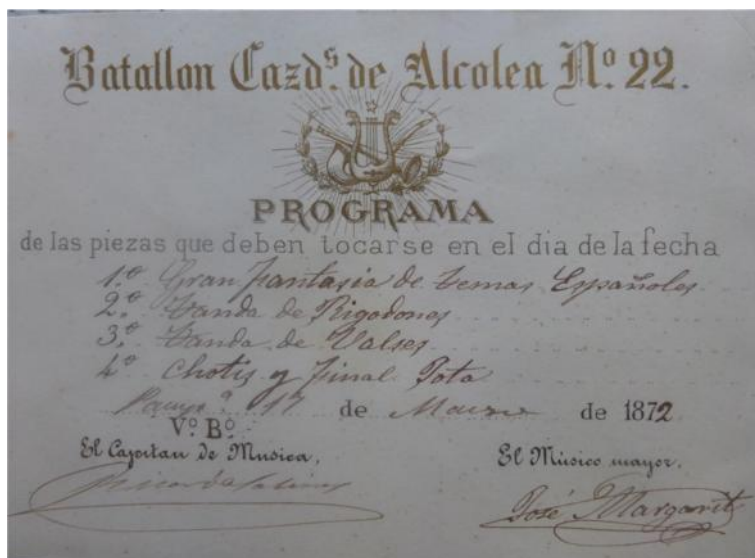 Batallon Cazd.ˢ de Alcolea Nº. 22.
PROGRAMA
de las piezas que deben tocarse en el dia de la fecha
1.º Gran fantasia de temas Españoles
2.º Tanda de Rigodones
3.º Tanda de Valses
4.º Chotis y final Jota
17 de Marzo de 1872
Vº. Bº.
El Capitan de Musica,
El Músico mayor,
José Margarit